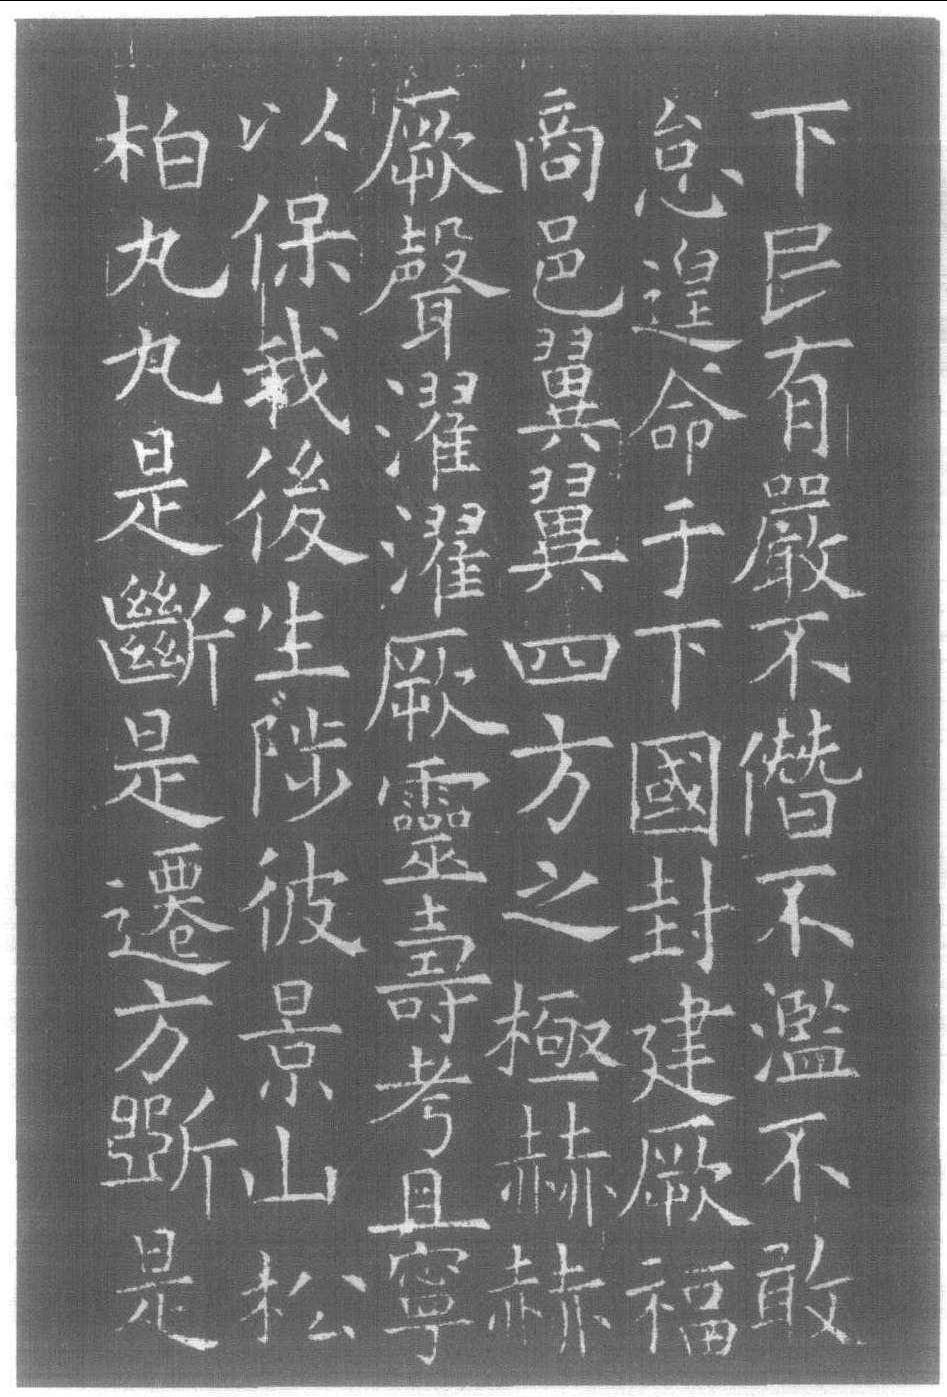 下民有嚴不僭不濫不敢
怠遑命于下國封建厥福
商邑翼翼四方之極赫赫
厥聲濯濯厥靈壽考且寧
以保我後生陟彼景山松
柏丸丸是斷是遷方斲是